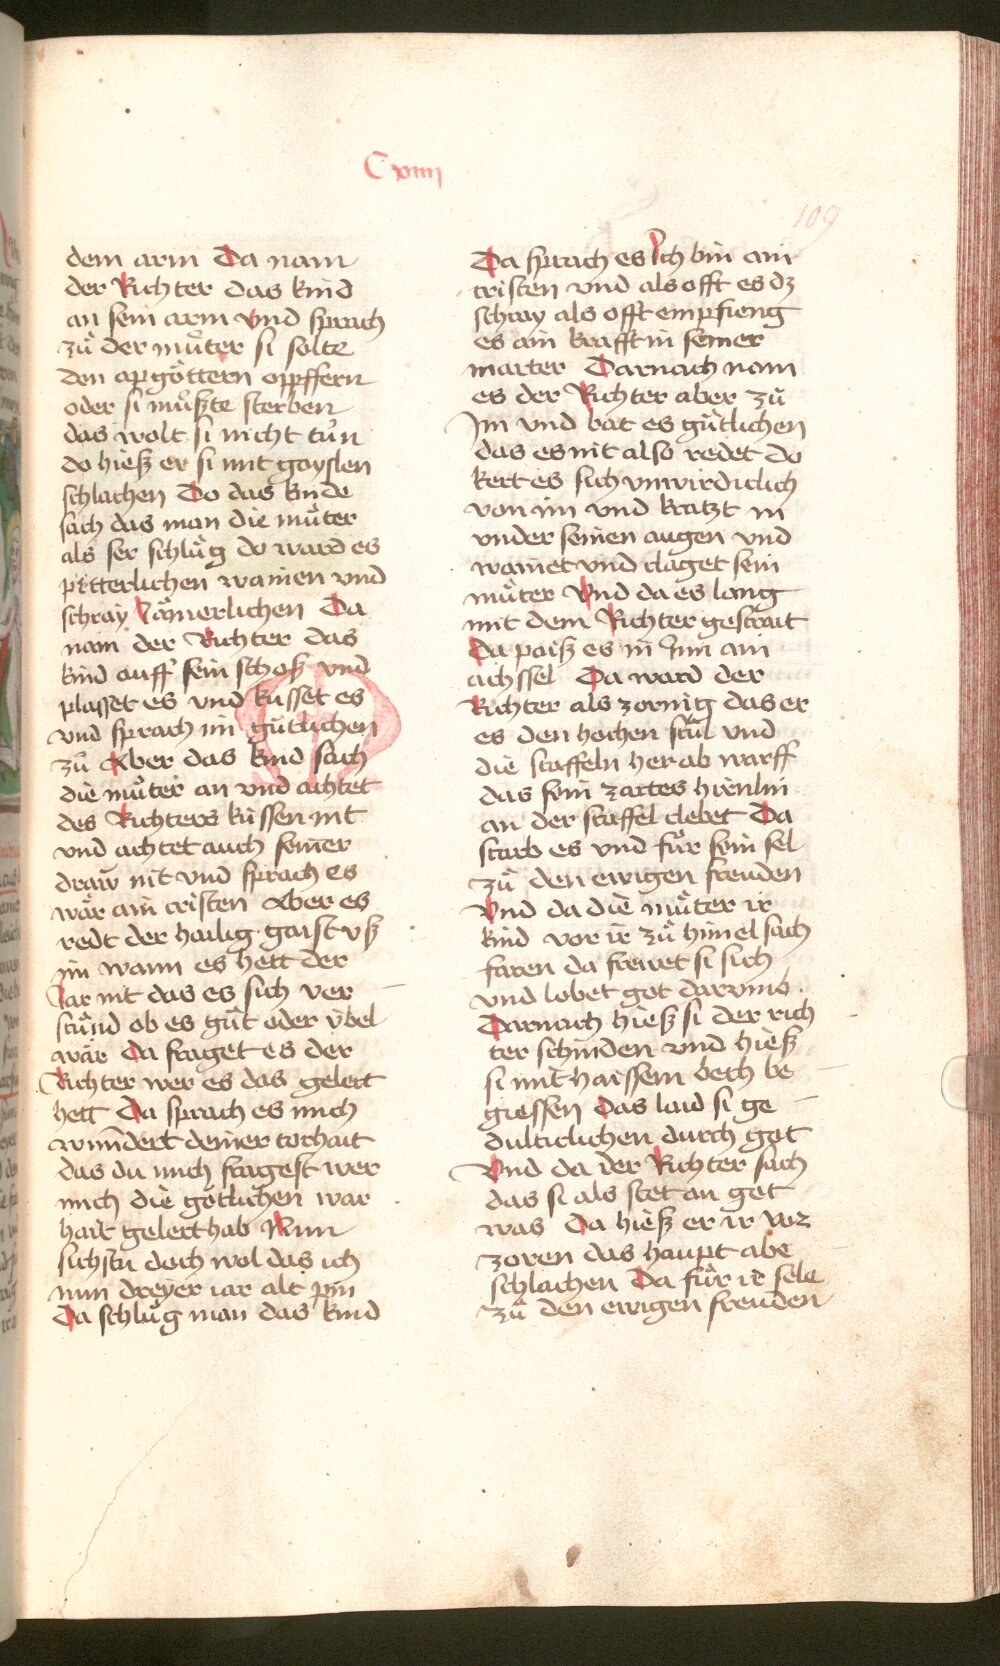 C xviiij
109
dem arm Da nam
der Richter das kind
an sein arm vnd sprach
zů der můter si solte
den apgöttern oppffern
oder si můßte sterben
das wolt si nicht tůn
do hieß er si mit gayslen
schlachen Do das kinde
sach das man die můter
als ser schlůg do ward es
pitterlichen wainen vnd
schray Jämerlichen Da
nam der Richter das
kind auff sein schoß vnd
plasset es vnd kusset es
vnd sprach im gůtlichen
zů Aber das kind sach
die můter an vnd achtet
des Richters küssen nit
vnd achtet auch seiner
draw nit vnd sprach es
wär ain cristen Aber es
redt der hailig gaist vß
im wann es hett der
Jar nit das es sich ver
stůnd ob es gůt oder ybel
wär Da fraget es der
Richter wer es das gelert
hett Da sprach es mich
wundert deiner torhait
das du mich fragest wer
mich die götlichen war
hait gelert hab Nun
sichstu doch wol das ich
nun dreyer iar alt pin
Da schlůg man das kind
Da sprach es Ich bin ain
cristen vnd als offt es dz
schray als offt empfieng
es ain krafft in seiner
marter Darnach nam
es der Richter aber zů
Im vnd bat es gůtlichen
das es nit also redet do
kert es sich vnwirdiclich
von im vnd kratzt in
vnder seinen augen vnd
wainet vnd claget sein
můter Vnd da es lang
mit dem Richter gestrait
Da paiß es in Inn ain
achssel Da ward der
Richter als zornig das er
es den hochen stůl vnd
die staffeln her ab warff
das sein zartes hirnlin
an der staffel clebet Da
starb es vnd fůr sein sel
zů den ewigen freuden
Vnd da die můter ir
kind vor ir zů himel sach
faren da frewet si sich
vnd lobet got darvmb.
Darnach hieß si der rich
ter schinden vnd hieß
si mit haissem bech be
giessen Das laid si ge
dulticlichen durch got
Vnd da der Richter sach
das si als stet an got
was Da hieß er ir vor
zoren das haupt abe
schlachen Da fůr ir sele
zů den ewigen freuden